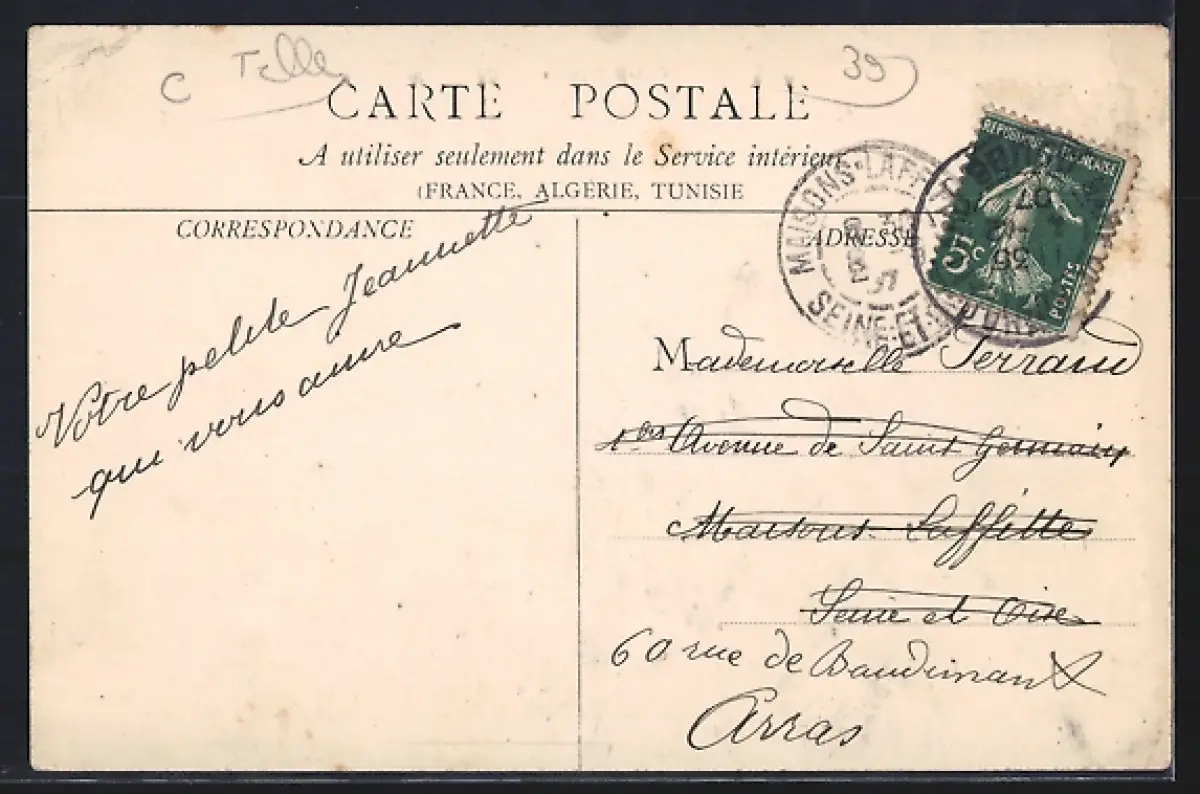 C Telle
39
CARTE POSTALE
A utiliser seulement dans le Service intérieur
(FRANCE, ALGÉRIE, TUNISIE
CORRESPONDANCE
ADRESSE
Votre petite Jeannette
qui vous aime
MAISONS-LAFF
SEINE-ET-
REPUBLIQUE FRANÇAISE
5c
POSTES
Mademoiselle Ferrand
Avenue de Saint Germain
Maisons-Laffitte
Seine et Oise
60 rue de Baudimont
Arras